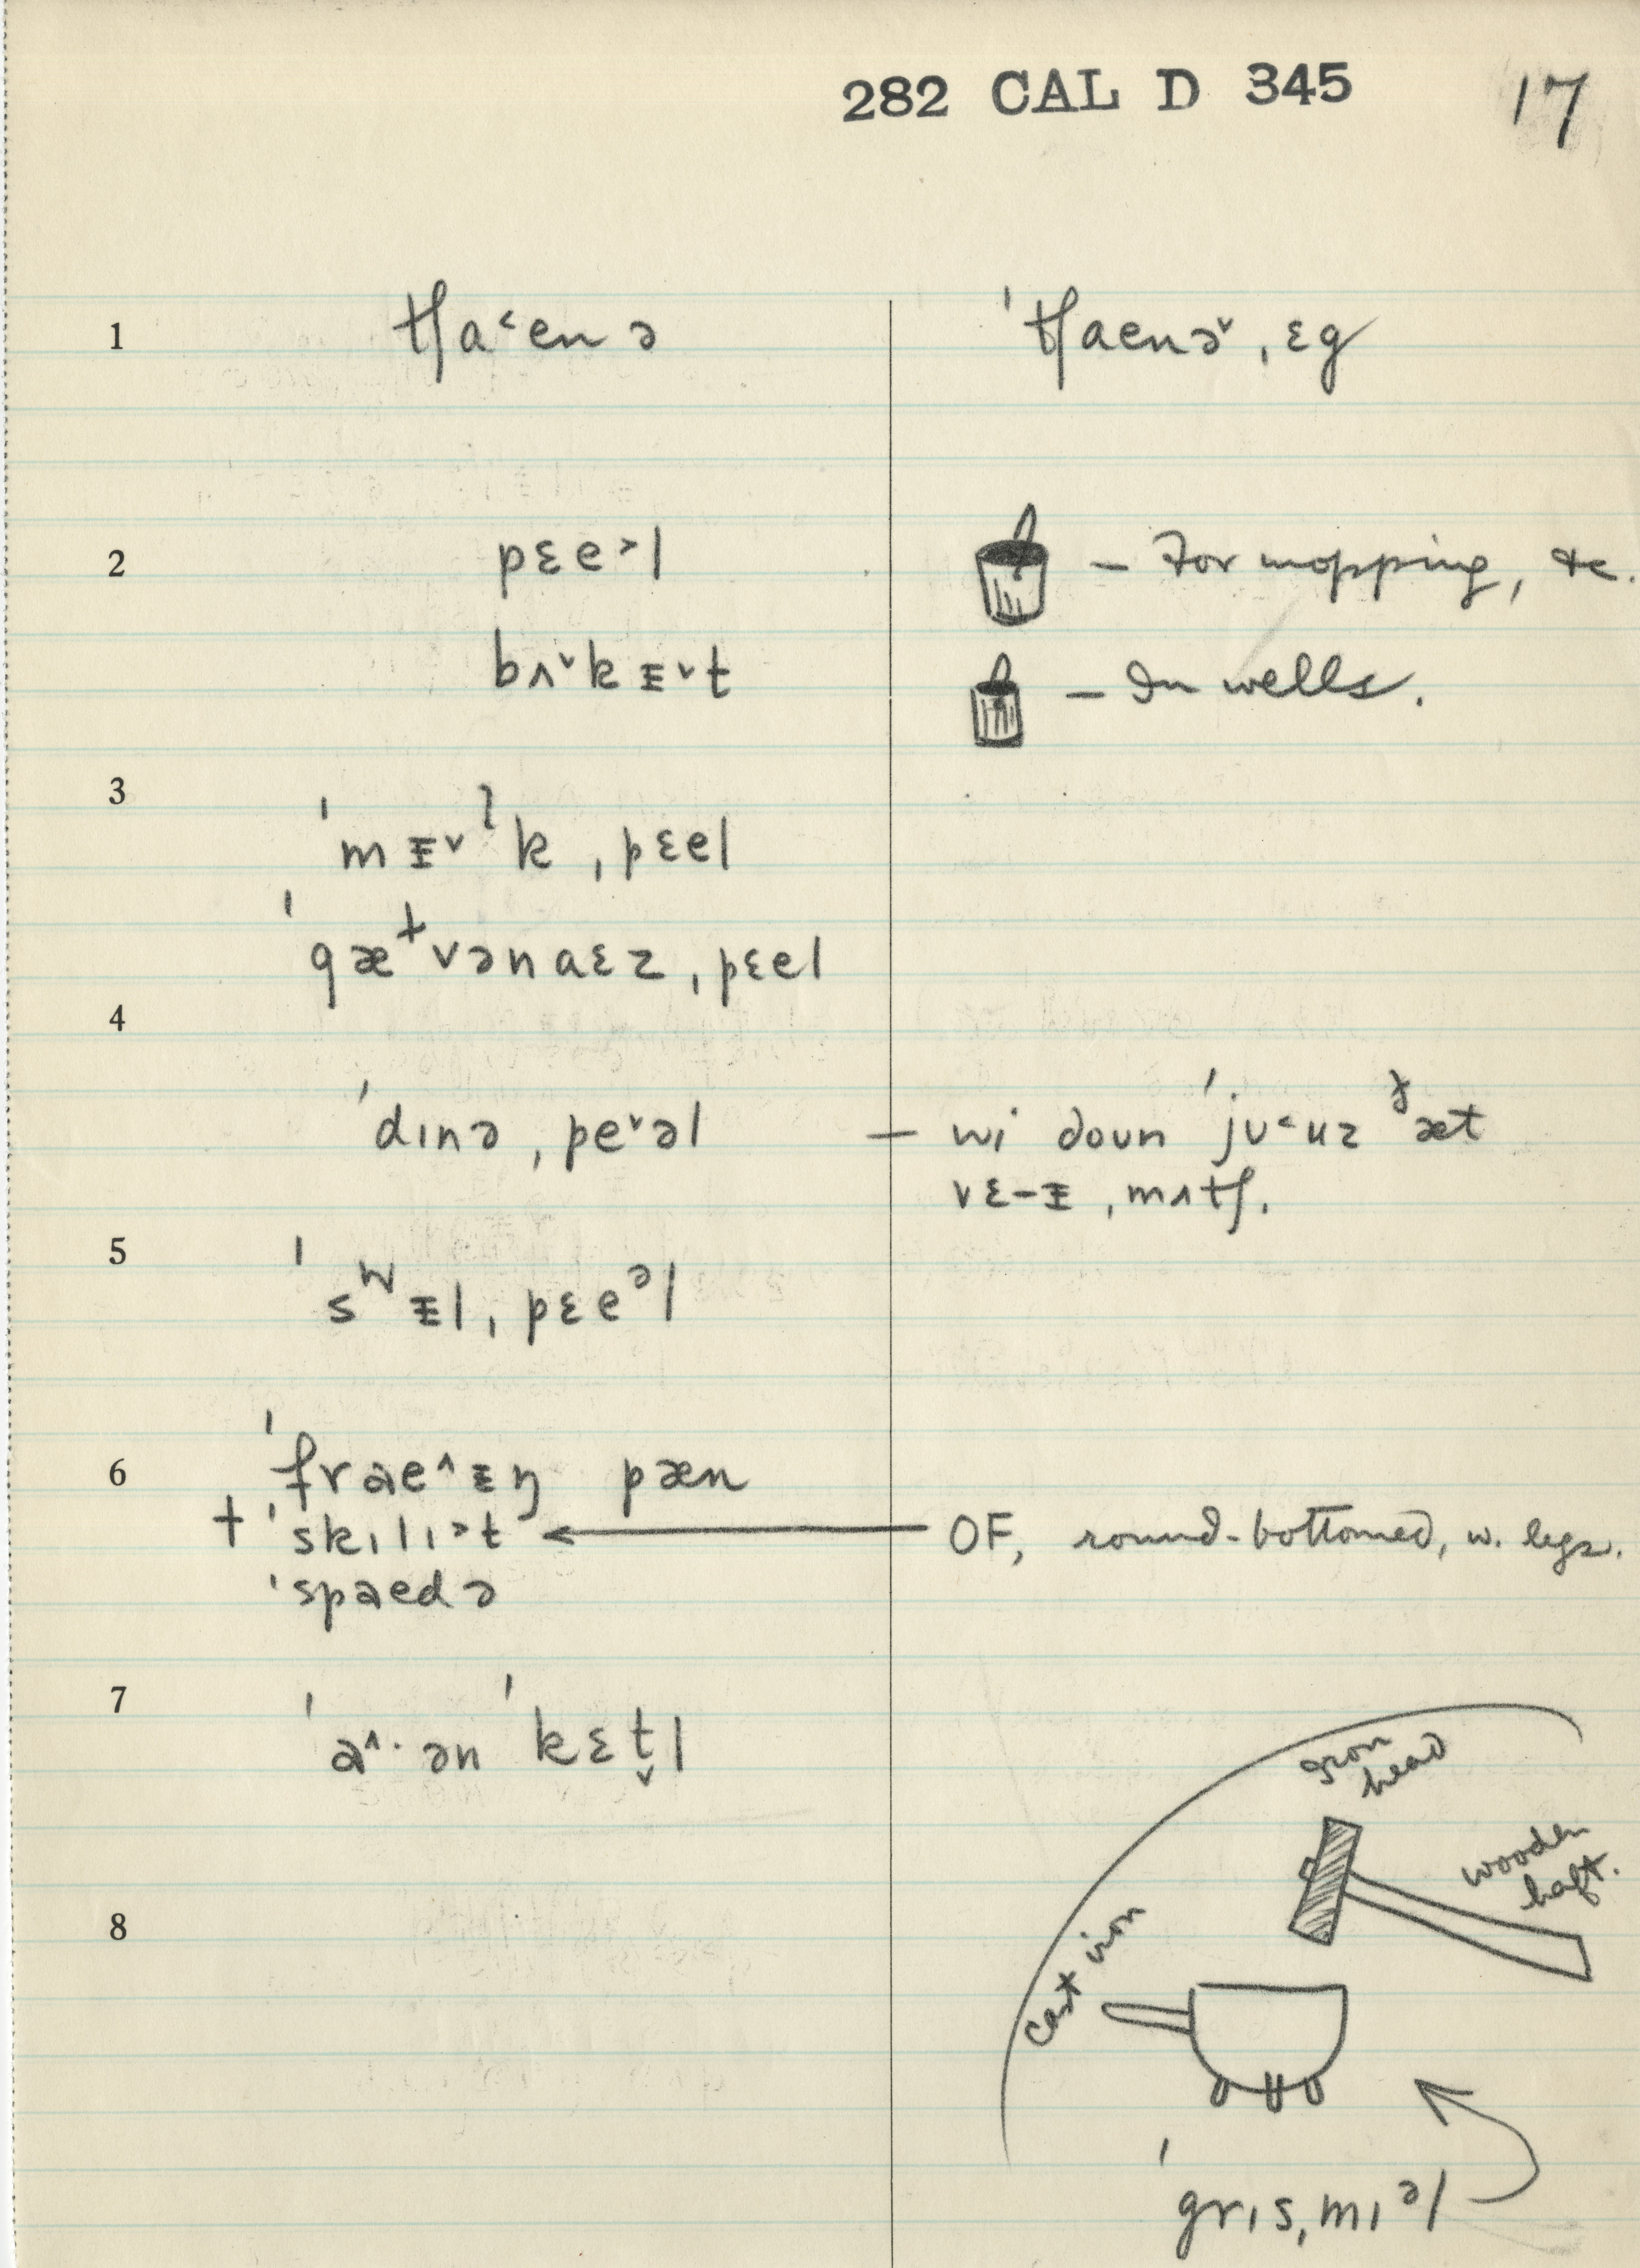 282 CAL D 345 17
1 tʃa˂enə ˈtʃaenə˅ˌɛg
2 pɛe˃l – For mopping, &c.
bʌ˅kᵻ˅t – In wells.
3
ˈmᵻ˅ˡkˌpɛel
ˈgæ˔vənaɛzˌpɛel
4
ˈdɪnəˌpe˅əl – wi doʊn ˈjʊ˂uz ᵟæt
vɛ-ᵻˌmʌtʃ.
5
ˈsʷᵻlˌpɛeᵊl
6 ˈfrae˄ᵻŋ pæn
+ ˈskɪlɪ˃t OF, round-bottomed, w. legs.
ˈspaedə
7
ˈa˄·ən ˈkɛt̬l
iron
head
wooden
haft.
8
cast iron
ˈgrɪsˌmɪᵊl